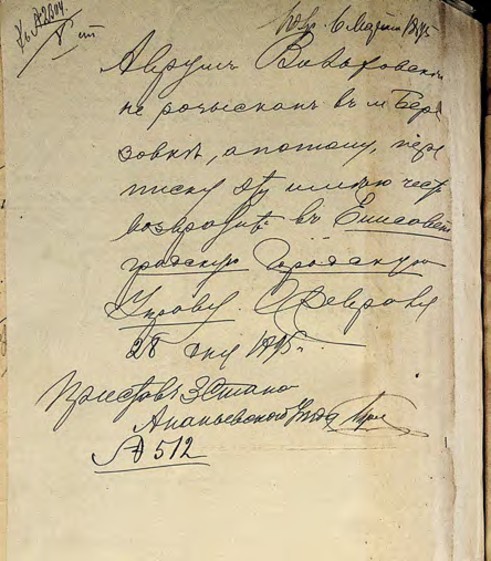 Къ № 2304
Пол. 6 Марта 1875
Аврумъ
не розысканъ въ м Бере
зовкѣ, а потому, пере
писку эту имѣю чест
возвратить въ Елисавет
градскую Городскую
Управу. Февраля
28 дня 1875 г.
Приставъ 3 Стана
Ананьевского уезда
№ 512